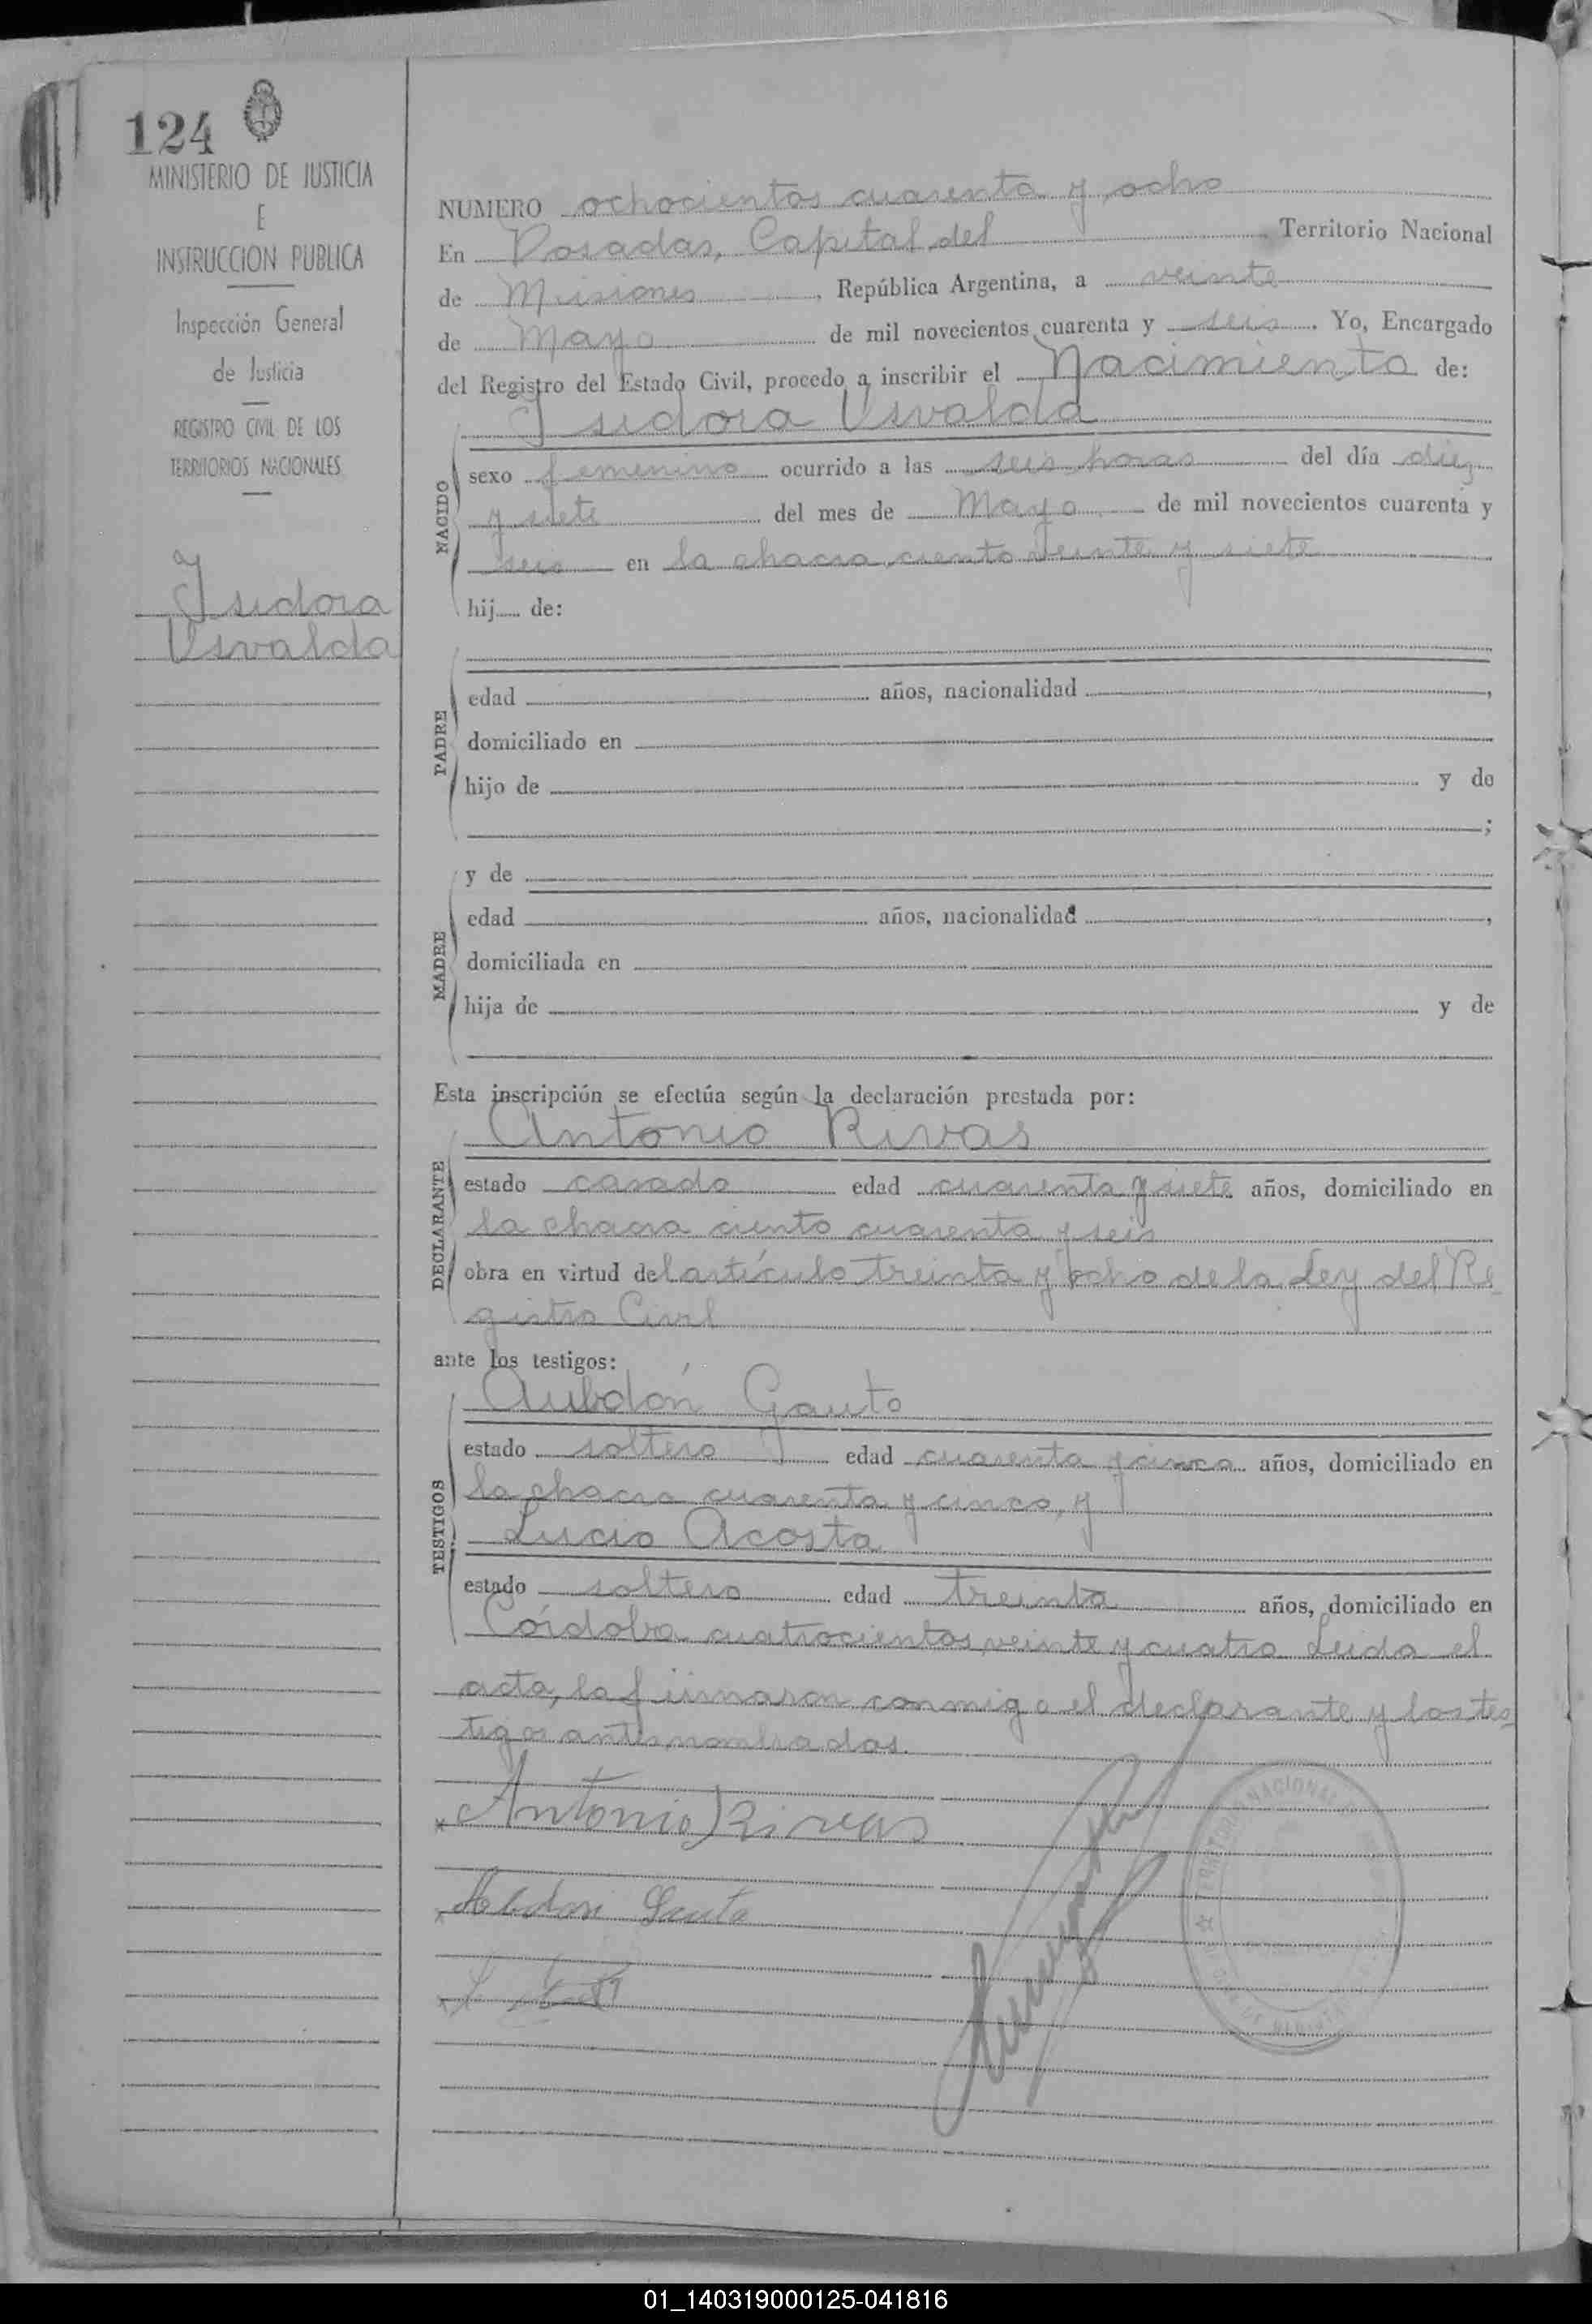 124
MINISTERIO DE JUSTICIA
E
INSTRUCCION PUBLICA
Inspección General
de Justicia
REGISTRO CIVIL DE LOS
TERRITORIOS NACIONALES
Isidora
Usvalda
NUMERO ochocientos cuarenta y ocho
En Posadas, Capital del Territorio Nacional
de Misiones, República Argentina, a veinte
de Mayo de mil novecientos cuarenta y seis. Yo, Encargado
del Registro del Estado Civil, procedo a inscribir el Nacimiento de:
Isidora Usvalda
NACIDO
sexo femenino ocurrido a las seis horas del día diez
y siete del mes de Mayo de mil novecientos cuarenta y
seis en la chacra ciento veinte y siete
hij de:
PADRE
edad años, nacionalidad ,
domiciliado en
hijo de y de
;
MADRE
y de
edad años, nacionalidad ,
domiciliada en
hija de y de
Esta inscripción se efectúa según la declaración prestada por:
Antonio Rivas
DECLARANTE
estado casado edad cuarenta y siete años, domiciliado en
la chacra ciento cuarenta y seis
obra en virtud del artículo treinta y ocho de la Ley del Re
gistro Civil
ante los testigos:
Aubdón Gauto
TESTIGOS
estado soltero edad cuarenta y cinco años, domiciliado en
la chacra cuarenta y cinco, y
Lucio Acosta
estado soltero edad treinta años, domiciliado en
Córdoba cuatrocientos veinte y cuatro Leida el
acta, la firmaron conmigo el declarante y los tes
tigos antes nombrados.
Antonio Rivas
Abdon Gauto
TERRITORIO NACIONAL
01_140319000125-041816